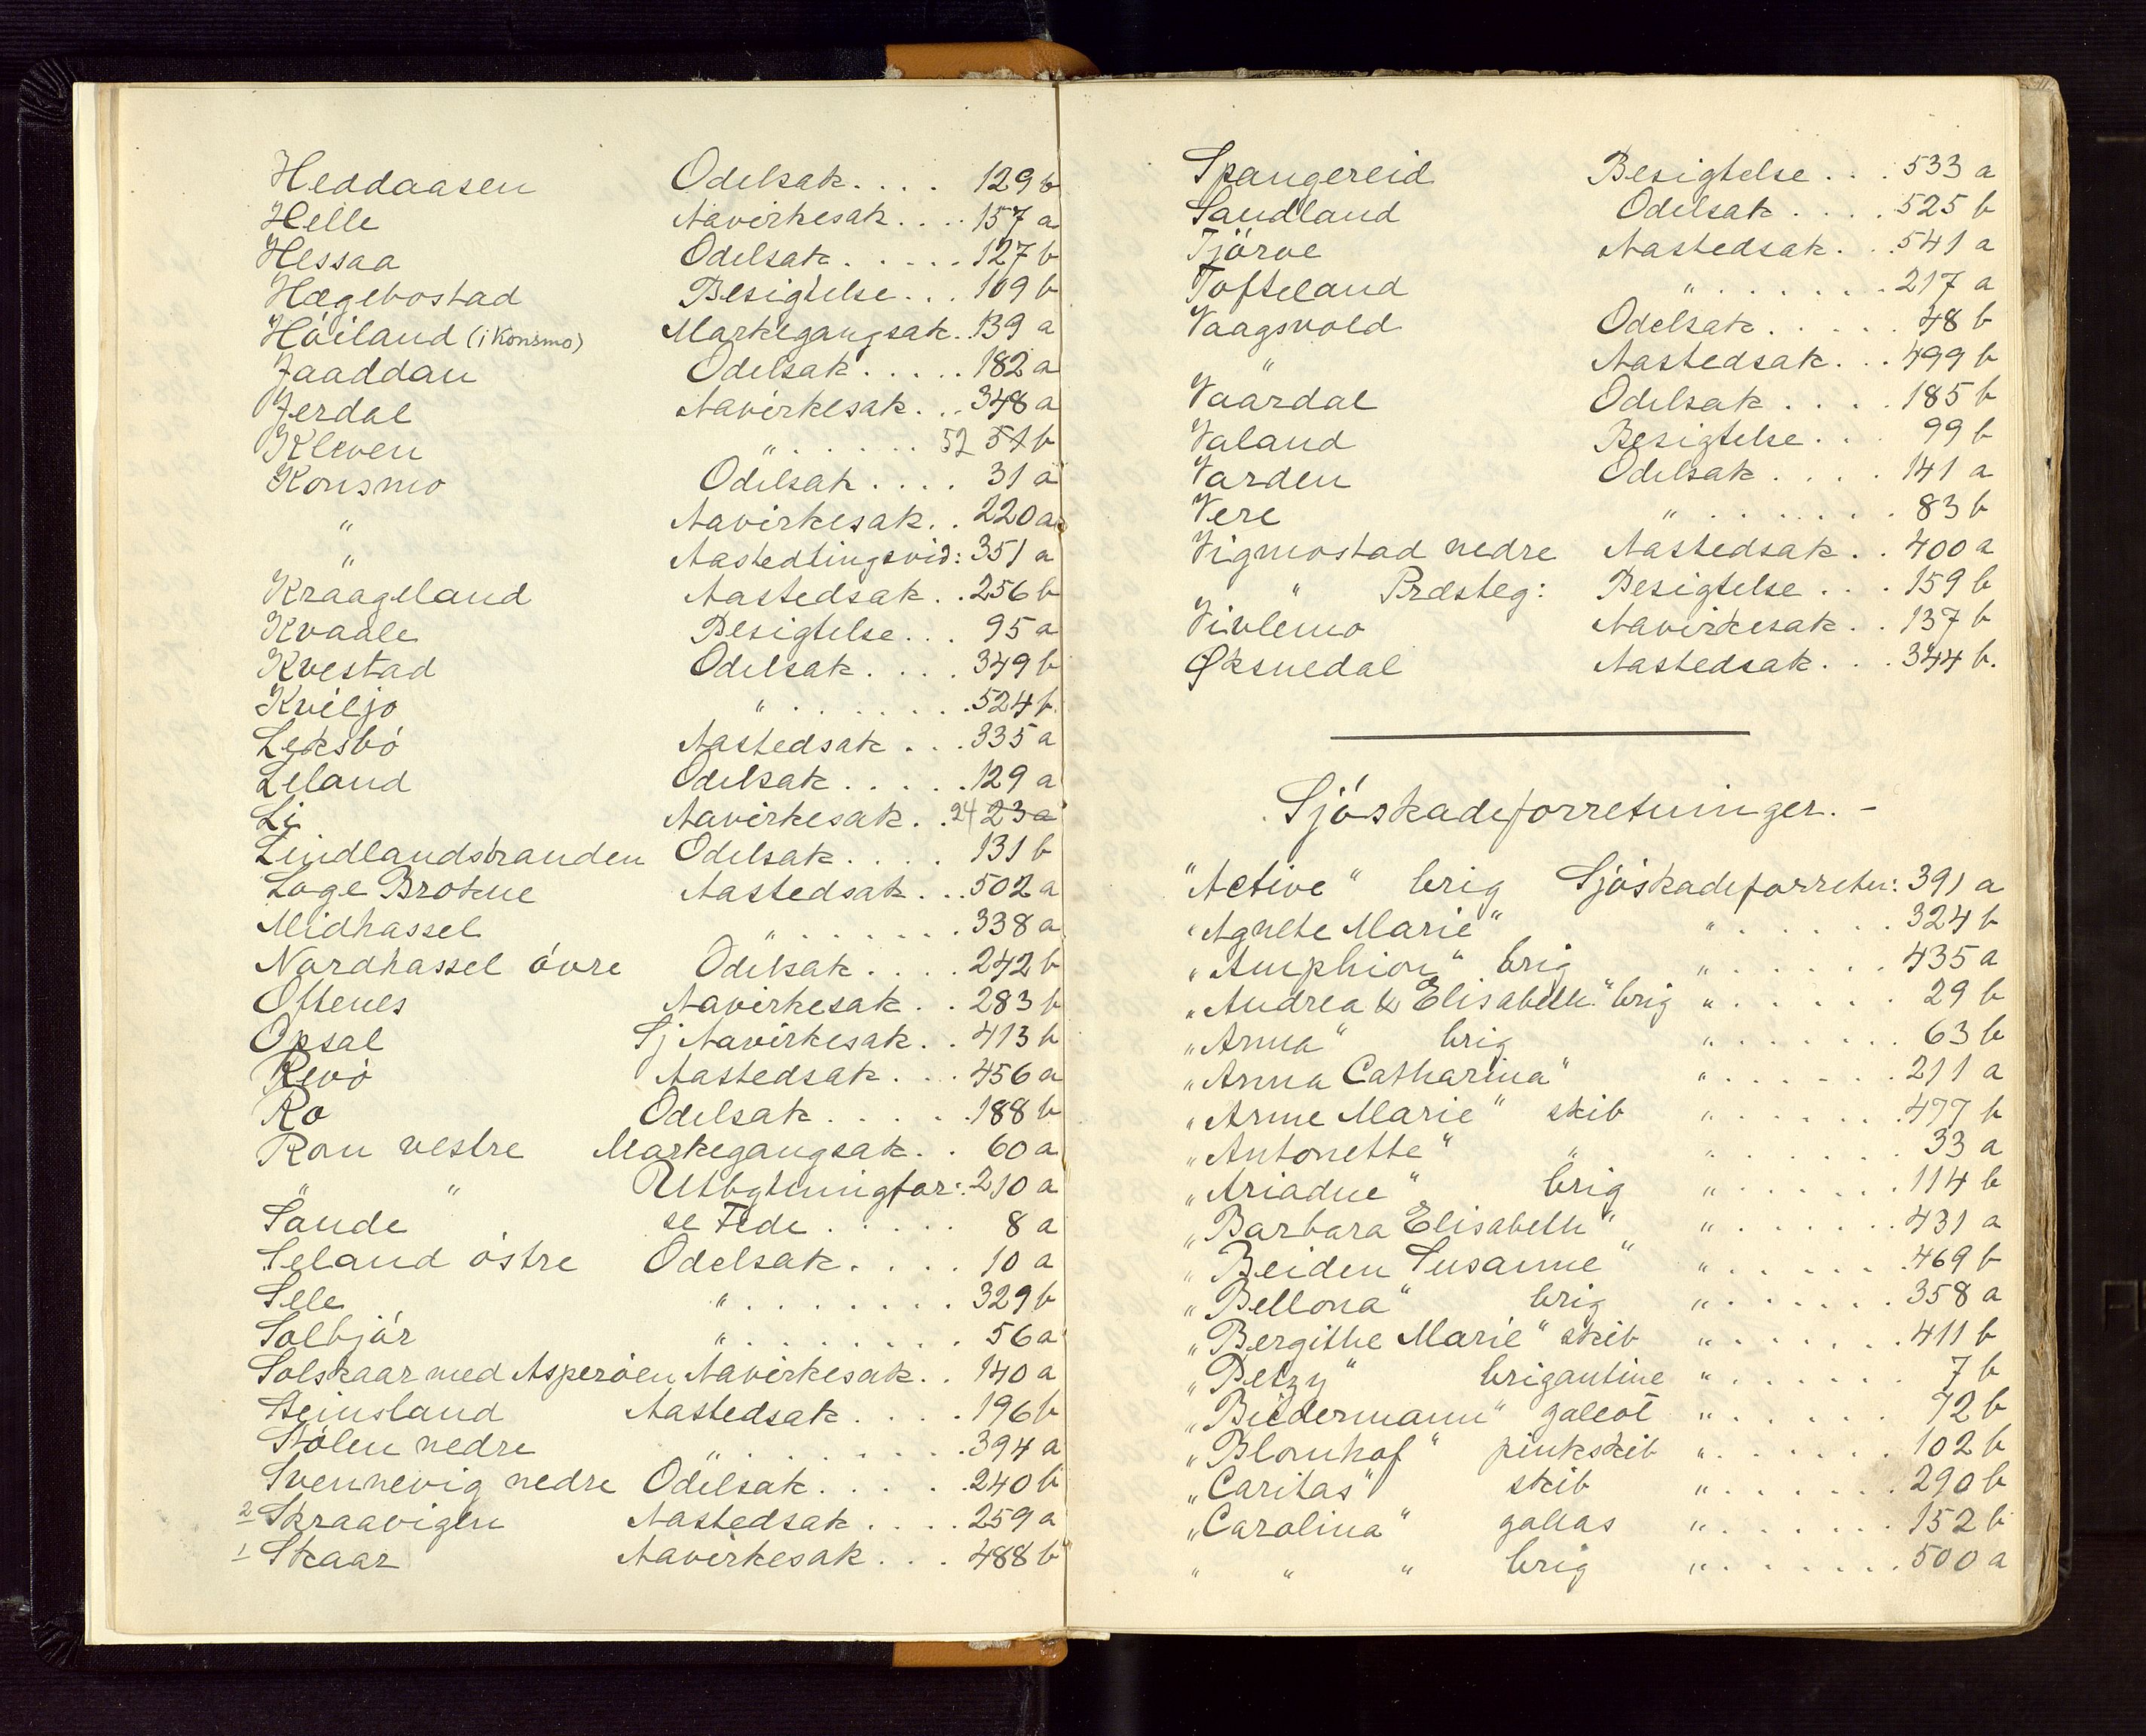 Heddaasen Odelsak.... 129 b
Helle Aavirkesak.... 157 a
Hessaa Odelsak..... 127 b
Hægebostad Besigtelse... 109 b
Høiland (i Konsmo) Markegangsak. 139 a
Jaaddan Odelsak..... 182 a
Jerdal Aavirkesak... 348 a
Kleven "...... 52 51 b
Konsmo Odelsak.... 31 a
" Aavirkesak.. 220 a
" Aastedtingsvid: 351 a
Kraageland Aastedsak.. 256 b
Kvaale Besigtelse... 95 a
Kvestad Odelsak.... 349 b
Kviljo "....... 524 b.
Leksbö Aastedsak... 335 a
Leland Odelsak..... 129 a
Li Aavirkesak.. 24 23 a
Lindlandstranden Odelsak.... 131 b
Loge Brokne Aastedsak... 502 a
Midhassel "...... 338 a
Nordhassel óvre Odelsak.... 242 b
Ottenes Aavirkesak.. 283 b
Opsal Sj Aavirkesak.. 413 b
Revö Aastedsak... 456 a
Ro Odelsak..... 188 b
Rom vestre Markegangsak.. 60 a
" " Utbytningfor:. 210 a
Sande se Fede..... 8 a
Seland óstre Odelsak.... 10 a
Selle "....... 329 b
Solbjór "....... 56 a
Solskaar med Asperöen Aavirkesak.. 140 a
Steinsland Aastedsak.... 196 b
Stólen nedre "....... 394 a
Svennevig nedre Odelsak..... 240 b
2 Skraavigen Aastedsak.... 259 a
1 Skaar Aavirkesak... 488 b
Spangereid Besigtelse... 533 a
Sandland Odelsak.... 525 b
Tjörve Aastedsak... 541 a
Tofteland "....... 217 a
Vaagsvold Odelsak..... 48 b
" Aastedsak... 499 b
Vaardal Odelsak.... 185 b
Valand Besigtelse... 99 b
Varden Odelsak.... 141 a
Vere "....... 83 b
Vigmostad nedre Aastedsak.. 400 a
" Præsteg: Besigtelse... 159 b
Vivlemo Aavirkesak.. 137 b
Øksnedal Aastedsak... 344 b.
Sjóskadeforretninger. -
"Active" brig Sjóskadeforretn: 391 a
"Agnete Marie" "...... 324 b
"Amphion" brig "...... 435 a
"Andrea & Elisabeth" brig "...... 29 b
"Anna" brig "....... 63 b
"Anna Catharina" "....... 211 a
"Anne Marie" skib "....... 477 b
"Antonette" " "...... 33 a
"Ariadne" brig "...... 114 b
"Barbara Elisabeth" "....... 431 a
"Beiden Susanne" "...... 469 b
"Bellona" brig "...... 358 a
"Bergithe Marie" skib "...... 411 b
"Betzy" brigantine "...... 7 b
"Biedermann" galeot "...... 72 b
"Blomhof" pinkskib "...... 102 b
"Caritas" skib "....... 290 b
"Carolina" galeas "....... 152 b
" " " brig "....... 500 a